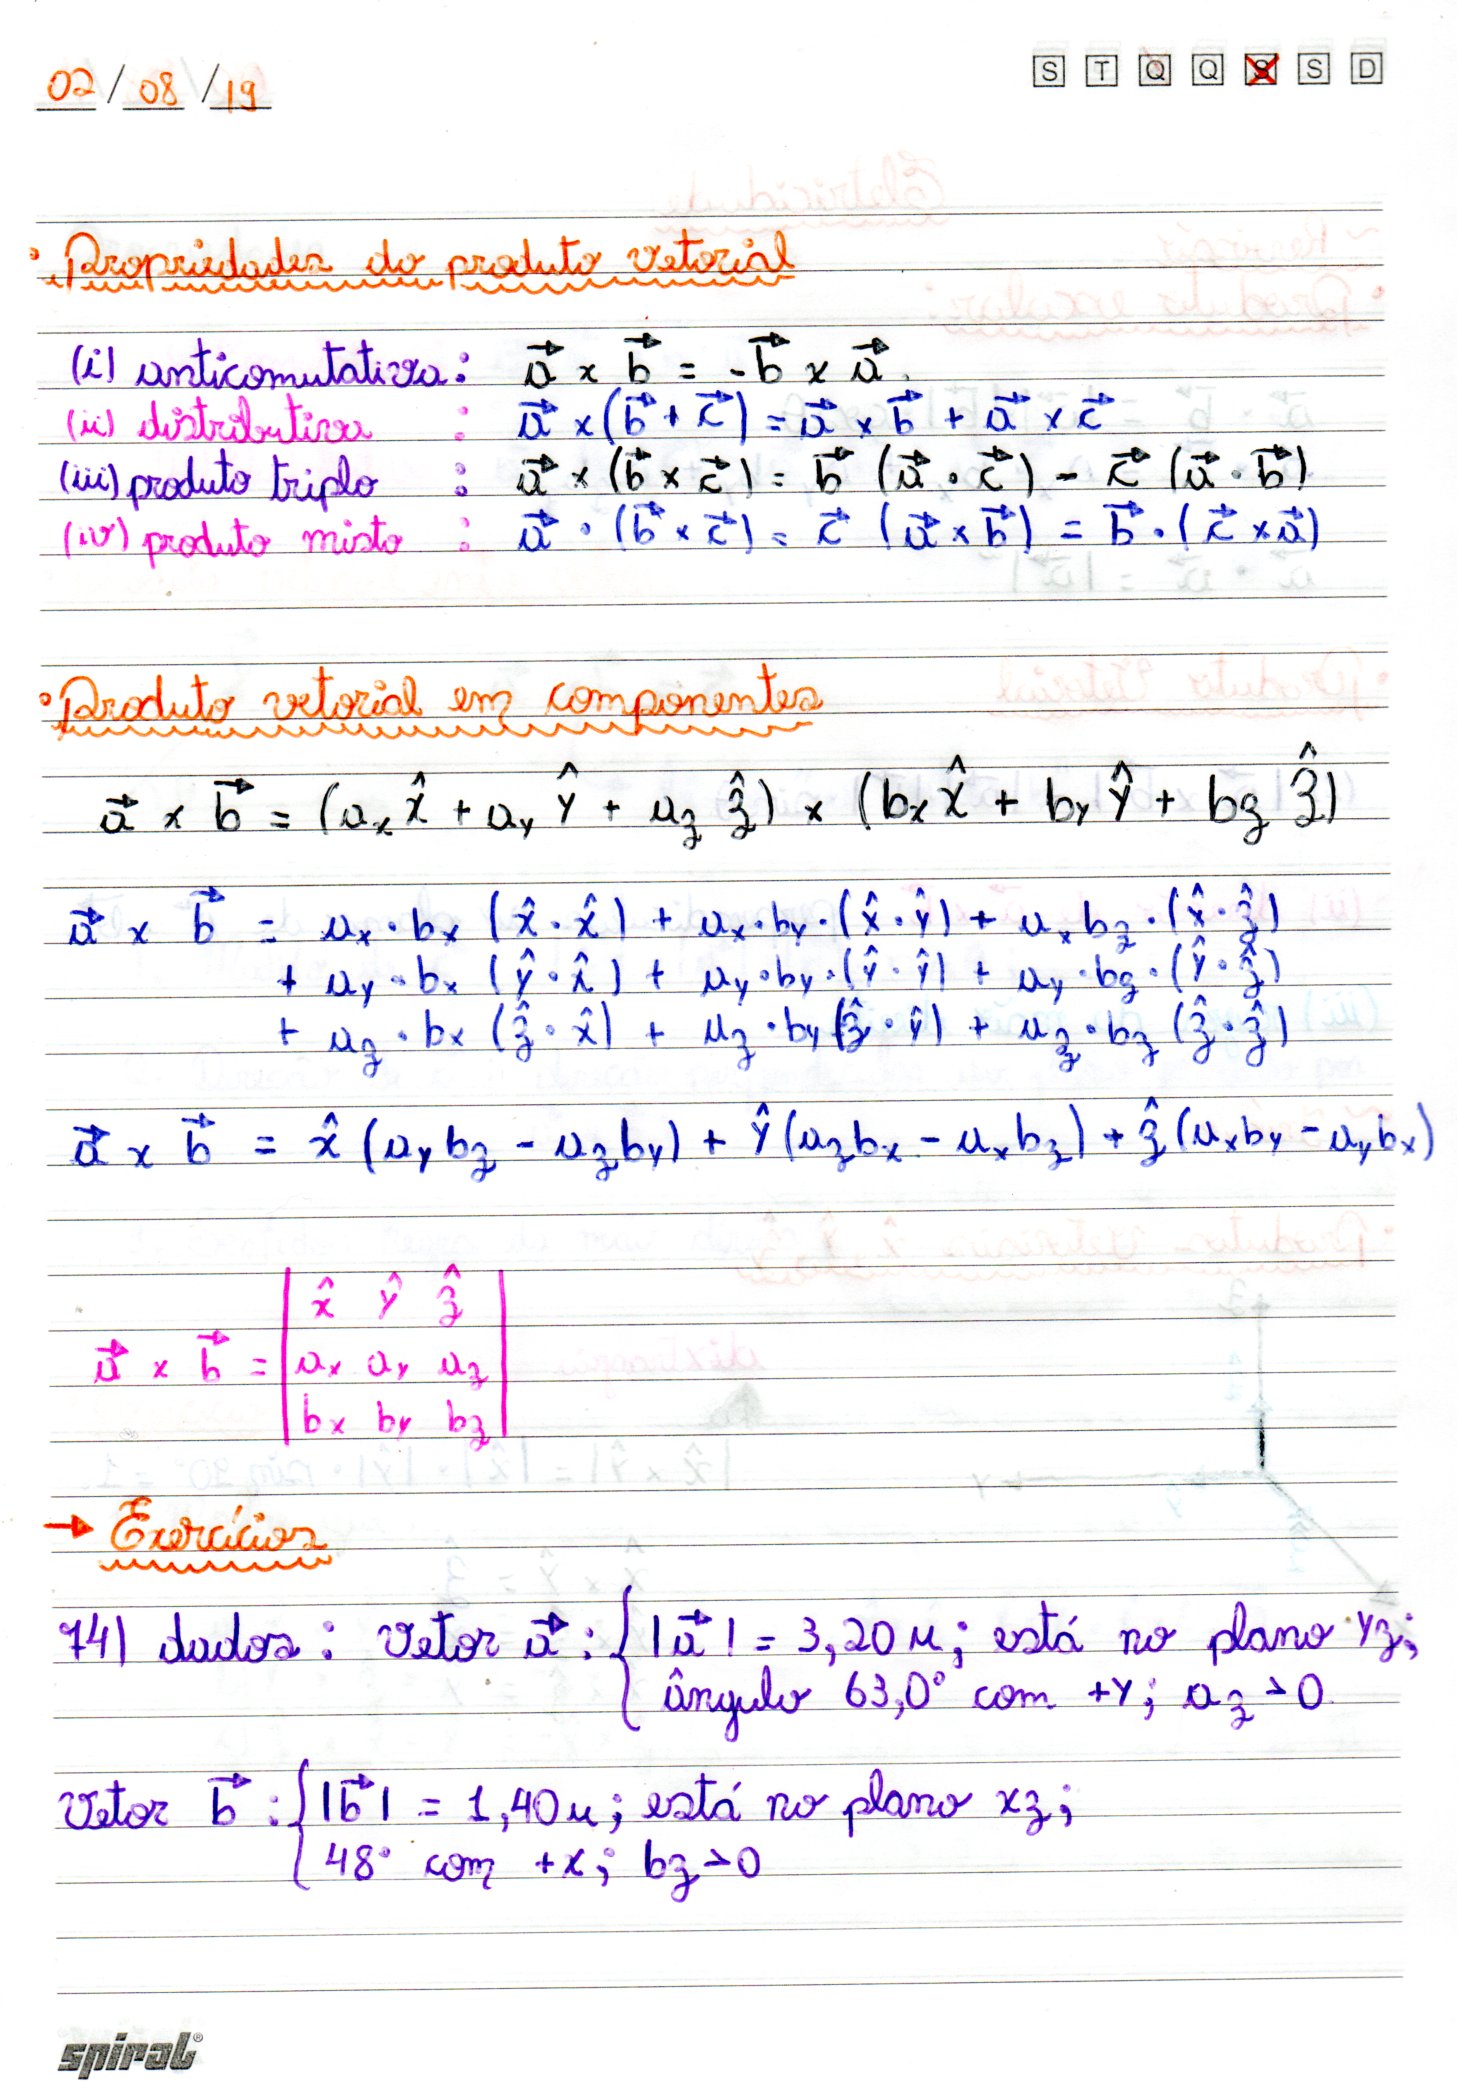 02/08/19 S T Q Q S S D
• Propriedades do produto vetorial
(i) anticomutativa: a⃗ × b⃗ = -b⃗ × a⃗.
(ii) distributiva : a⃗ × (b⃗ + c⃗) = a⃗ × b⃗ + a⃗ × c⃗
(iii) produto triplo : a⃗ × (b⃗ × c⃗) = b⃗ (a⃗ · c⃗) - c⃗ (a⃗ · b⃗)
(iv) produto misto : a⃗ · (b⃗ × c⃗) = c⃗ (a⃗ × b⃗) = b⃗ · (c⃗ × a⃗)
• Produto vetorial em componentes
a⃗ × b⃗ = (ax x̂ + ay ŷ + az ẑ) × (bx x̂ + by ŷ + bz ẑ)
a⃗ × b⃗ = ax · bx (x̂ · x̂) + ax · by · (x̂ · ŷ) + ax bz · (x̂ · ẑ)
+ ay · bx (ŷ · x̂) + ay · by · (ŷ · ŷ) + ay · bz · (ŷ · ẑ)
+ az · bx (ẑ · x̂) + az · by (ẑ · ŷ) + az · bz (ẑ · ẑ)
a⃗ × b⃗ = x̂ (ay bz - az by) + ŷ (az bx - ax bz) + ẑ (ax by - ay bx)
x̂ ŷ ẑ
a⃗ × b⃗ = | ax ay az |
bx by bz
→ Exercícios
74) dados: vetor a⃗ : { |a⃗| = 3,20 u; está no plano yz;
ângulo 63,0° com +y; az > 0
Vetor b⃗ : { |b⃗| = 1,40 u; está no plano xz;
48° com +x; bz > 0
spiral®